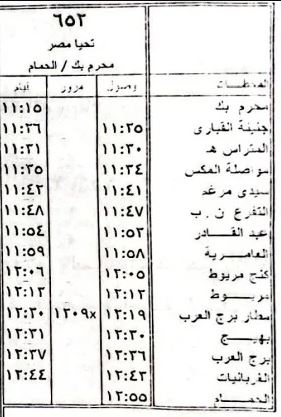 ٦٥٢
تحيا مصر
محرم بك / الحمام
المحطات وصول مرور قيام
محرم بك ١١:١٥
جنينة القبارى ١١:٢٥ ١١:٢٦
المتراس هـ ١١:٣٠ ١١:٣١
مواصلة المكس ١١:٣٤ ١١:٣٥
سيدى مرغم ١١:٤١ ١١:٤٢
التفرع ن.ب ١١:٤٧ ١١:٤٨
عبد القادر ١١:٥٣ ١١:٥٤
العامرية ١١:٥٨ ١١:٥٩
كنج مريوط ١٢:٠٥ ١٢:٠٦
مريوط ١٢:١٢ ١٢:١٣
مطار برج العرب ١٢:١٩ ١٢٠٩x ١٢:٢٠
بهيج ١٢:٣٠ ١٢:٣١
برج العرب ١٢:٣٦ ١٢:٣٧
الغربانيات ١٢:٤٣ ١٢:٤٤
الحمام ١٢:٥٥